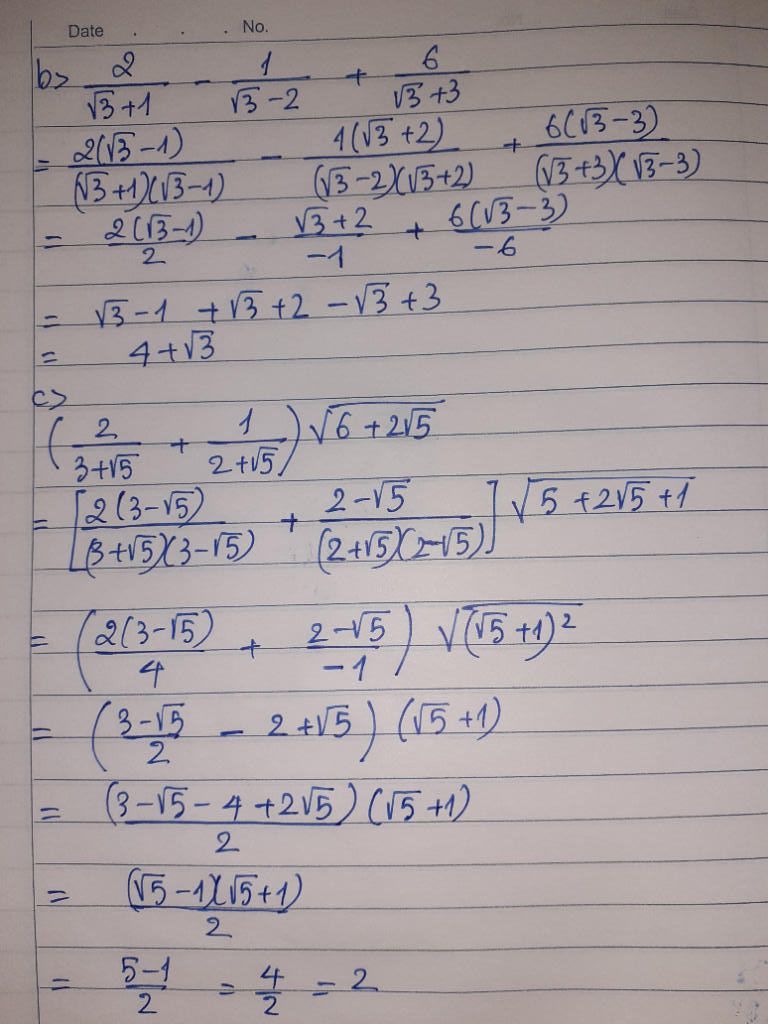 Date . . . No.
b> 2/(√3+1) - 1/(√3-2) + 6/(√3+3)
= 2(√3-1)/((√3+1)(√3-1)) - 1(√3+2)/((√3-2)(√3+2)) + 6(√3-3)/((√3+3)(√3-3))
= 2(√3-1)/2 - (√3+2)/(-1) + 6(√3-3)/(-6)
= √3-1 +√3+2 -√3+3
= 4+√3
c>
(2/(3+√5) + 1/(2+√5)) √(6+2√5)
= [2(3-√5)/((3+√5)(3-√5)) + (2-√5)/((2+√5)(2-√5))] √(5+2√5+1)
= (2(3-√5)/4 + (2-√5)/(-1)) √((√5+1)²)
= ((3-√5)/2 - 2+√5) (√5+1)
= (3-√5-4+2√5)(√5+1)/2
= (√5-1)(√5+1)/2
= (5-1)/2 = 4/2 = 2